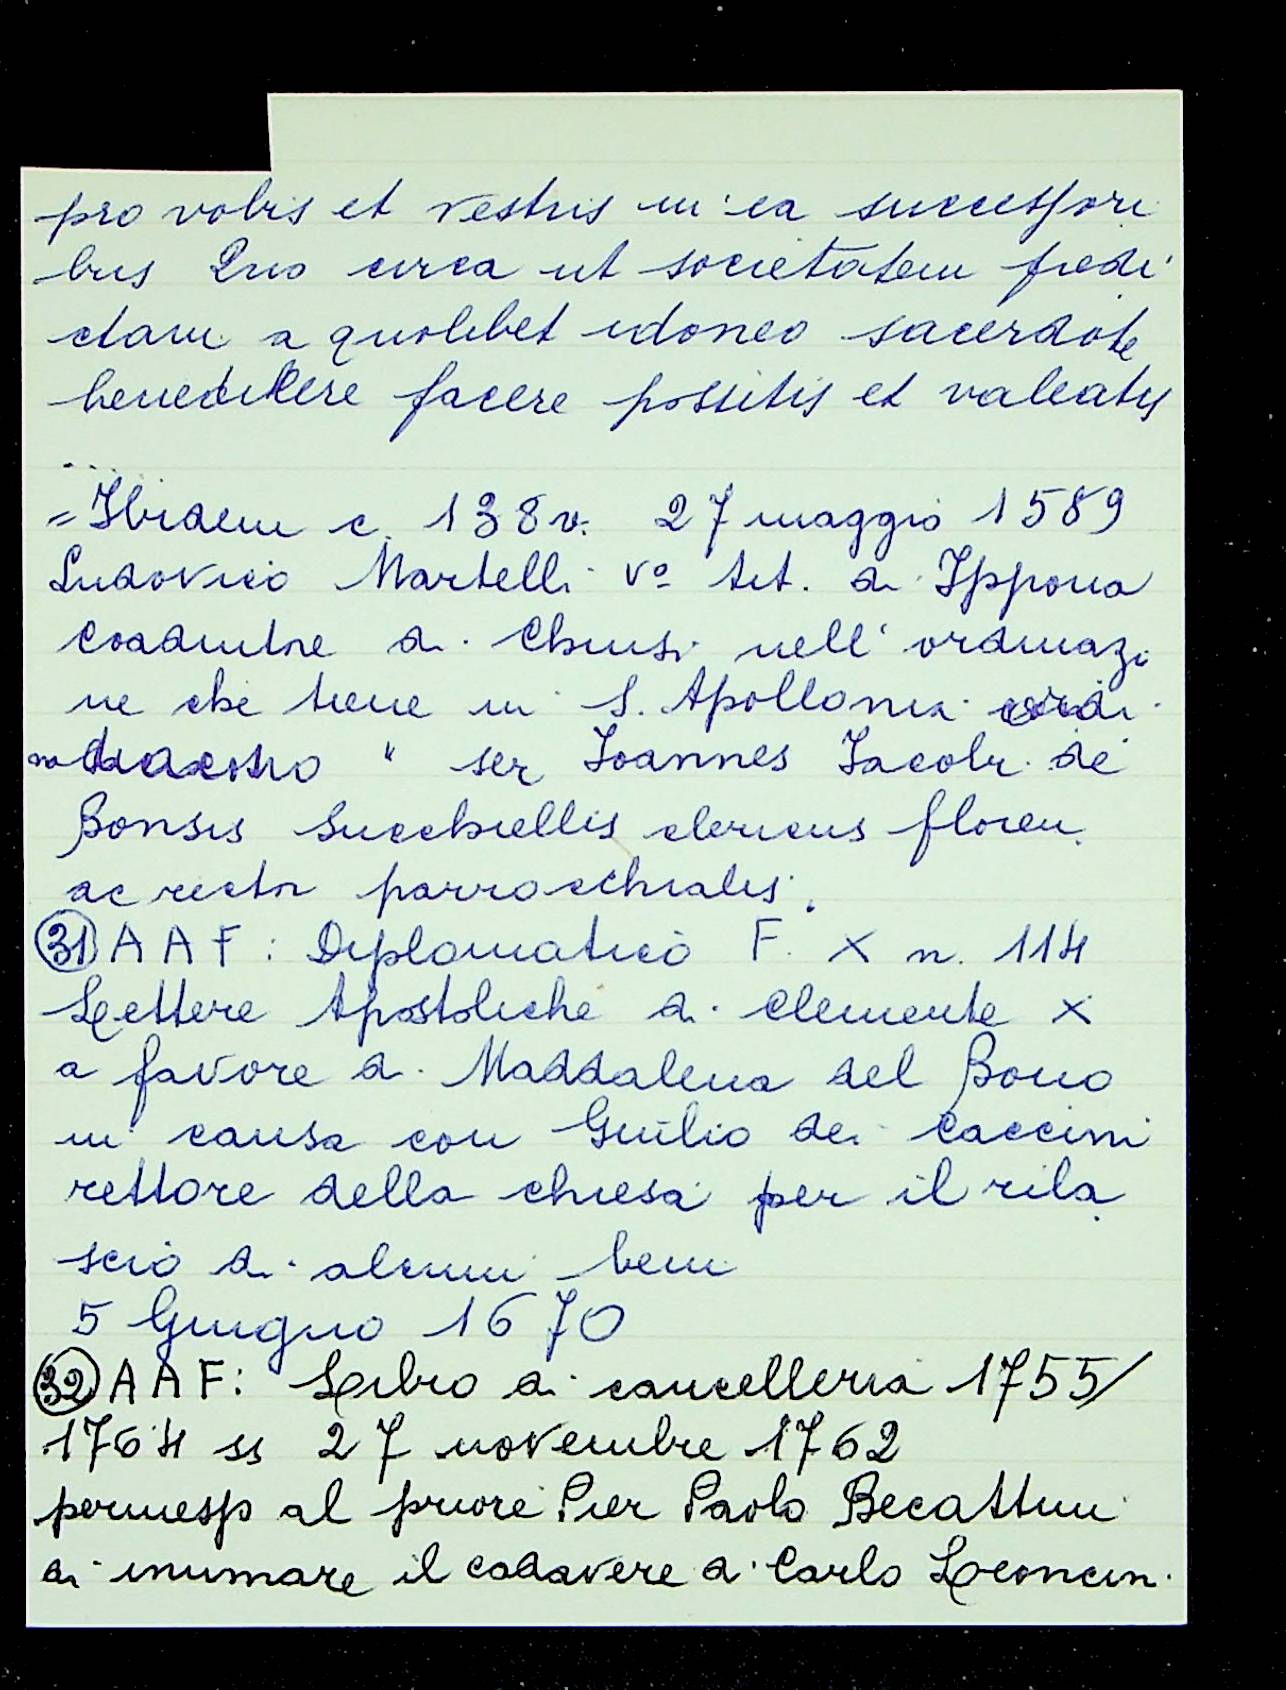 pro vobis et vestris in ea successori
bus Quo circa ut societatem predi
ctam a quolibet idoneo sacerdote
benedicere facere possitis et valeatis
...
= Ibidem c. 138v. 27 maggio 1589
Ludovico Martelli vº tit. di Ippona
coadiutore di Chiusi nell'ordinazi
ne che tiene in S. Apollonia ordi
na diacono " ser Joannes Jacobi de
Bonsis Succhiellis clericus floren.
ac rector parrocchialis.
31 A A F: Diplomatico F. X n. 114
Lettere Apostoliche di Clemente X
a favore di Maddalena del Bono
in causa con Giulio dei Caccini
rettore della chiesa per il rila
scio di alcuni beni
5 Giugno 1670
32 A A F: Libro di cancelleria 1755/
1764 ss 27 novembre 1762
permesso al priore Pier Paolo Becattini
di inumare il cadavere di Carlo Leoncin